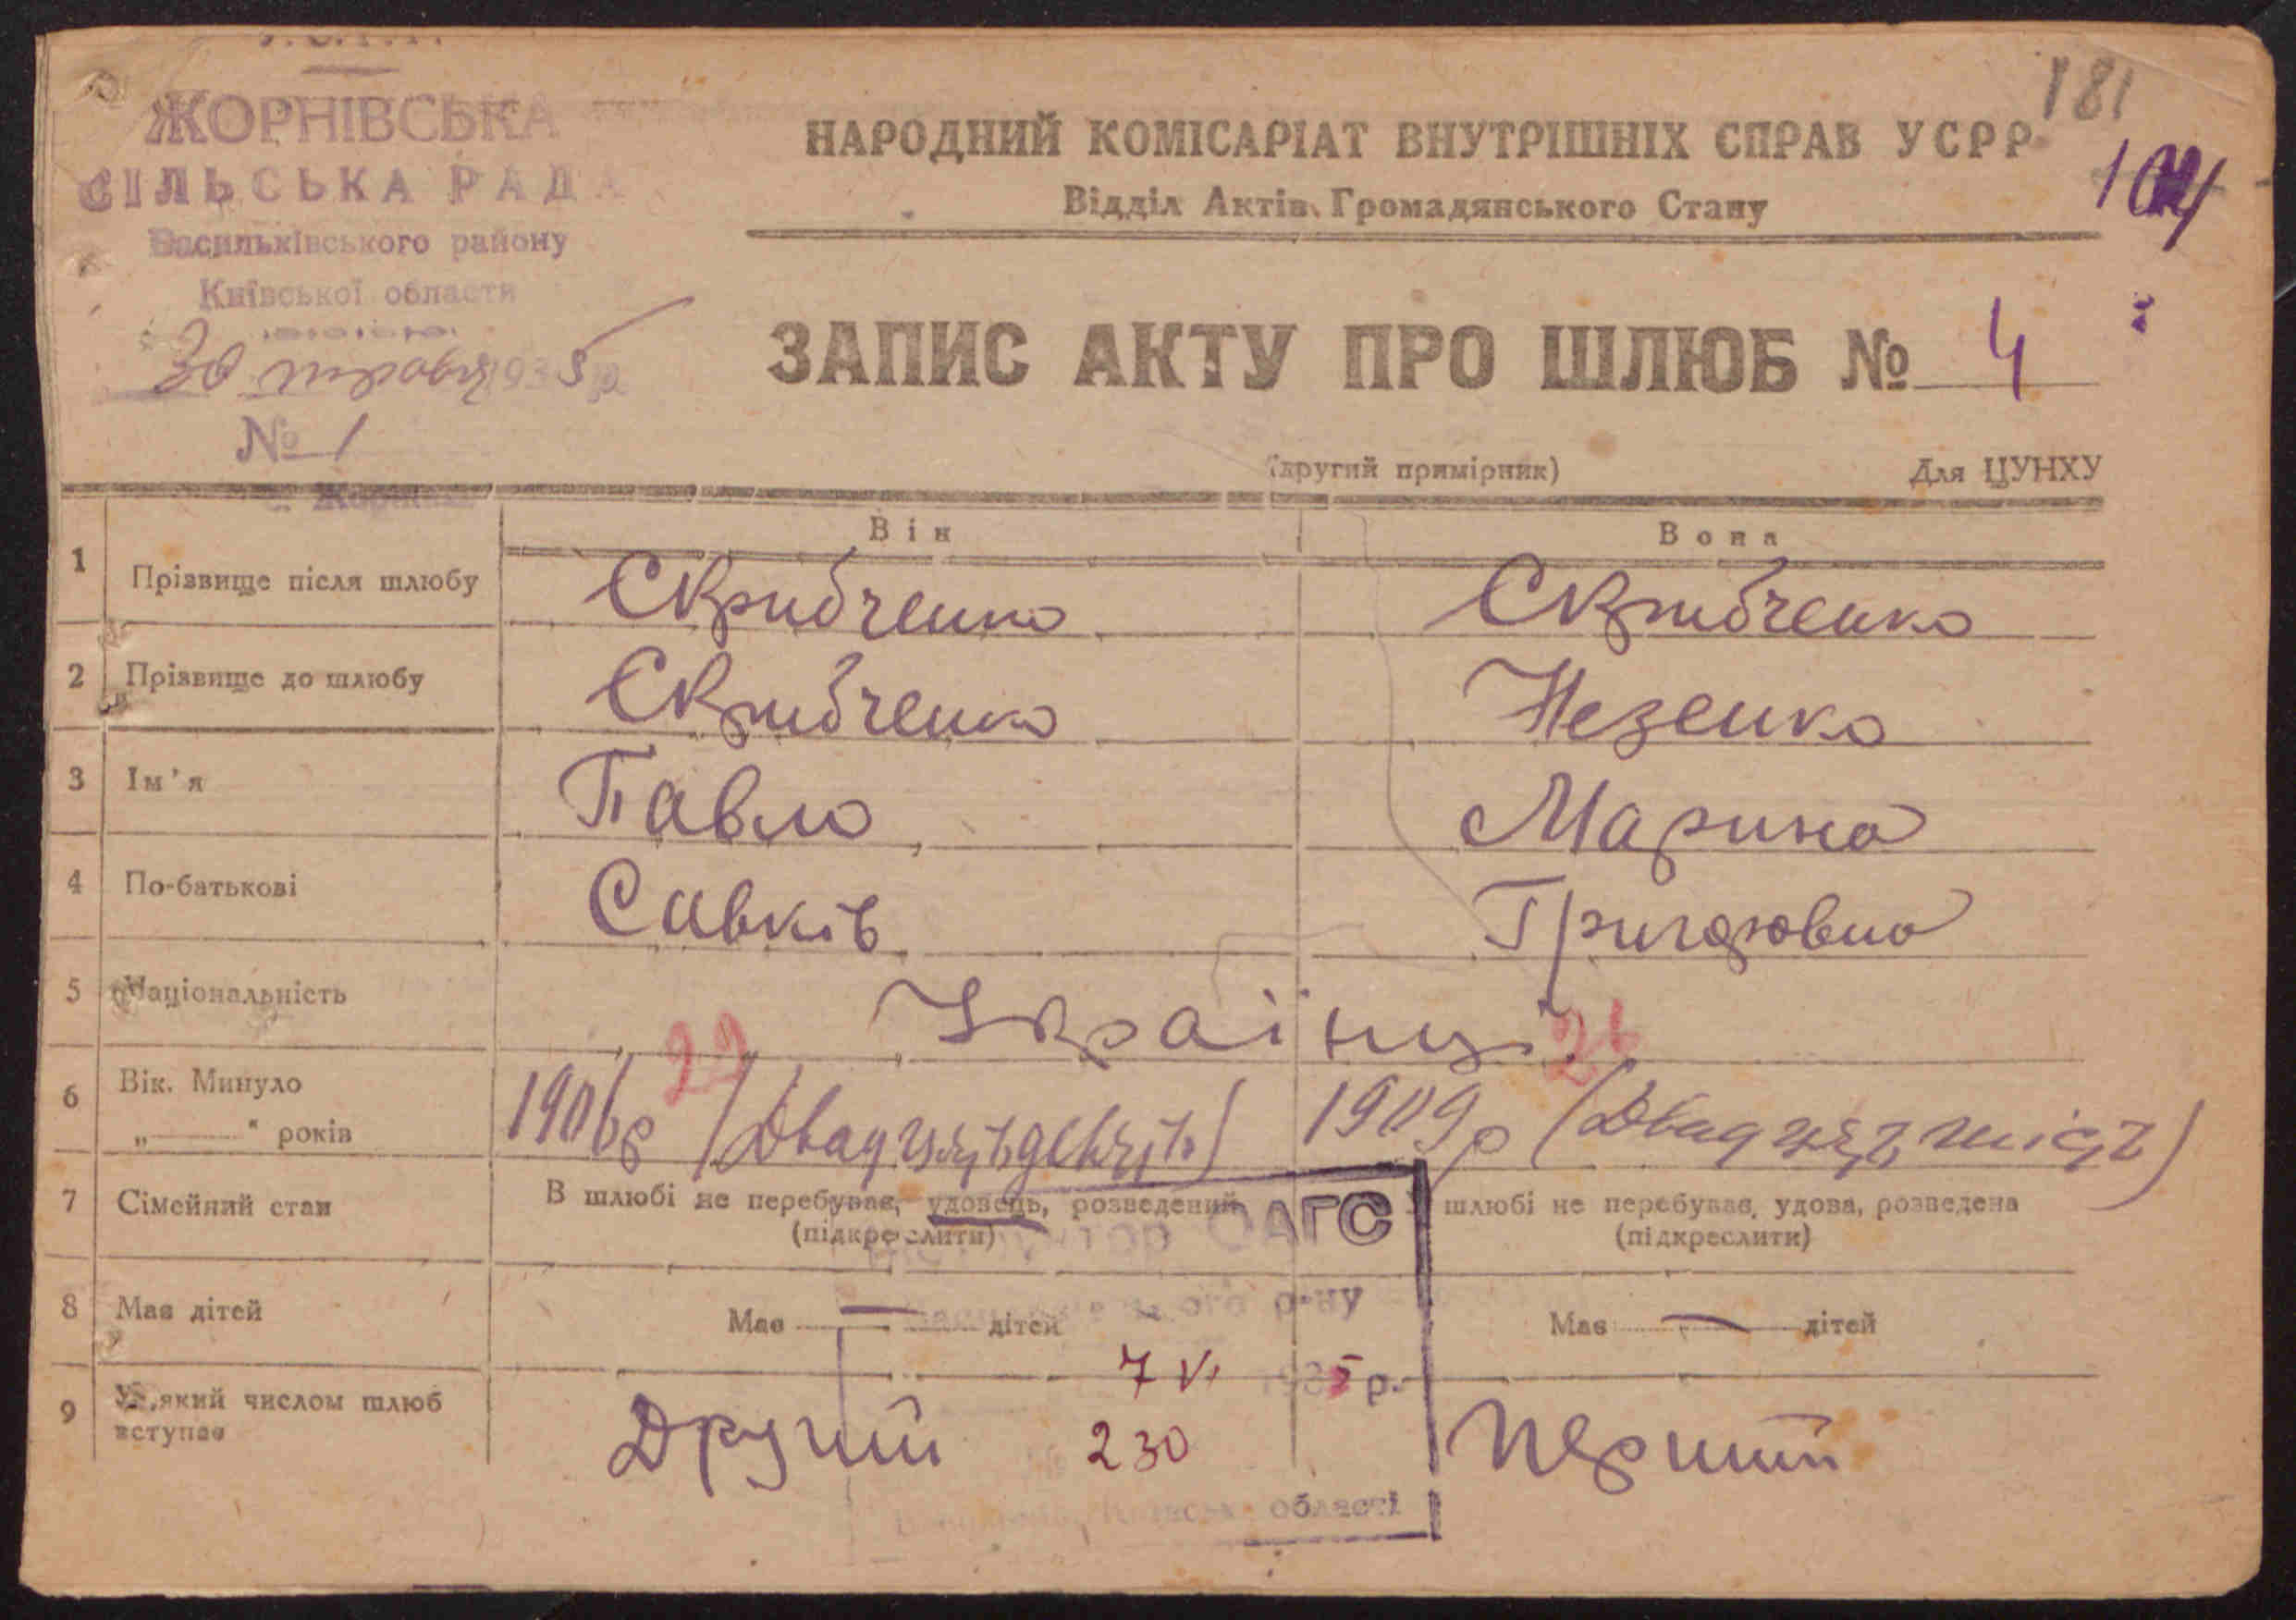 ЖОРНІВСЬКА
СІЛЬСЬКА РАДА
Васильківського району
Київської области
30 травня 1935 р.
№ 1
181
104
НАРОДНИЙ КОМІСАРІАТ ВНУТРІШНІХ СПРАВ УСРР
Відділ Актів Громадянського Стану
ЗАПИС АКТУ ПРО ШЛЮБ № 4
(другий примірник) Для ЦУНХУ
Він Вона
1 Прізвище після шлюбу Скрибченко Скрибченко
2 Прізвище до шлюбу Скрибченко Незенко
3 Ім'я Павло Марина
4 По-батькові Савків Григоровна
5 Національність Українці
29 26
6 Вік. Минуло 1906 р (Двадцять девять) 1909 р (Двадцять шість)
„ “ років
7 Сімейний стан В шлюбі не перебував, удовець, розведений У шлюбі не перебував, удова, розведена
(підкреслити) (підкреслити)
ОАГС
р-ну
8 Має дітей Має — дітей Має — дітей
7 VI 1935 р.
9 У який числом шлюб вступає Другий 230 Перший
області